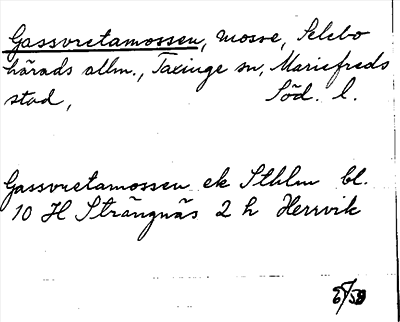 Gassvretamossen, mosse, Selebo
härads allm., Taxinge sn, Mariefreds
stad, Söd. l.
Gassvretamossen ek Sthlm bl.
10 H Strängnäs 2 h Herrvik